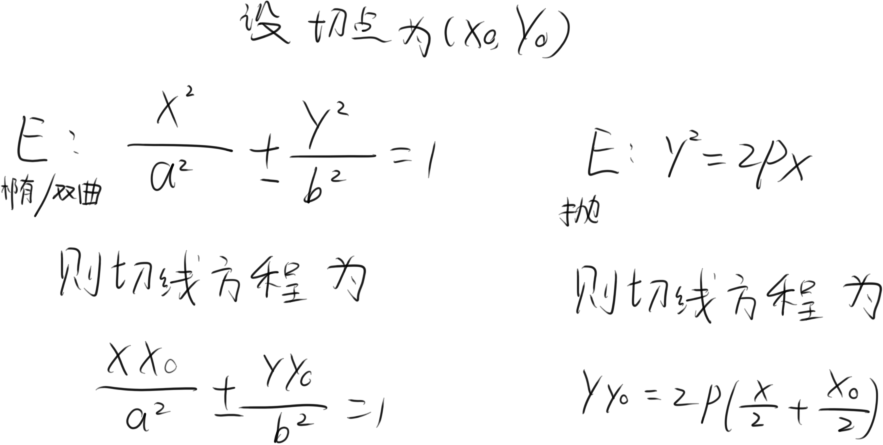 设切点为(x₀, y₀)
E: x²/a² ± y²/b² = 1
椭/双曲
则切线方程为
xx₀/a² ± yy₀/b² = 1
E: y² = 2px
抛
则切线方程为
yy₀ = 2p(x/2 + x₀/2)